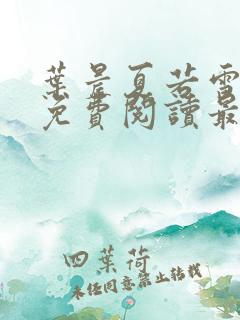 葉晨夏若雪
免費閱讀最
四葉荷
未经同意禁止转载